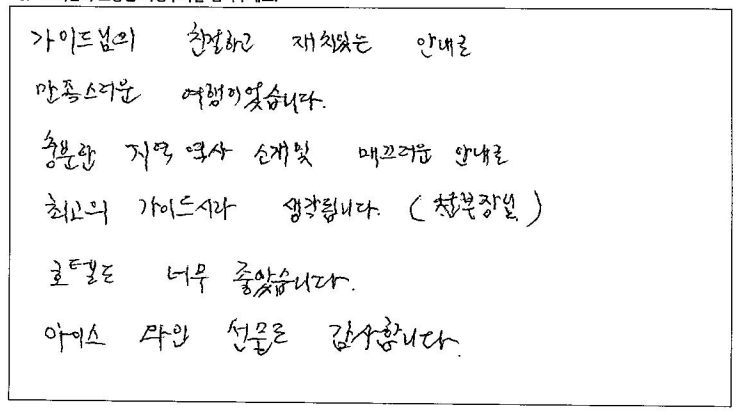 가이드님의 친절하고 재치있는 안내로
만족스러운 여행이었습니다.
충분한 지역 역사 소개및 매끄러운 안내로
최고의 가이드시라 생각됩니다. (
호텔도 너무 좋았습니다.
아이스 와인 선물도 감사합니다.